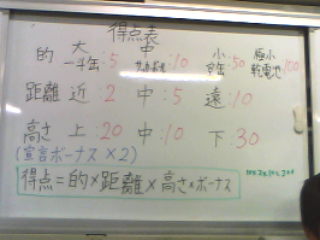 得点表
的 大 一斗缶:5 中 サッカーボール:10 小 空缶:50 極小 乾電池:100
距離 近:2 中:5 遠:10
高さ 上:20 中:10 下:30
(宣言ボーナス×2)
得点=的×距離×高さ×ボーナス